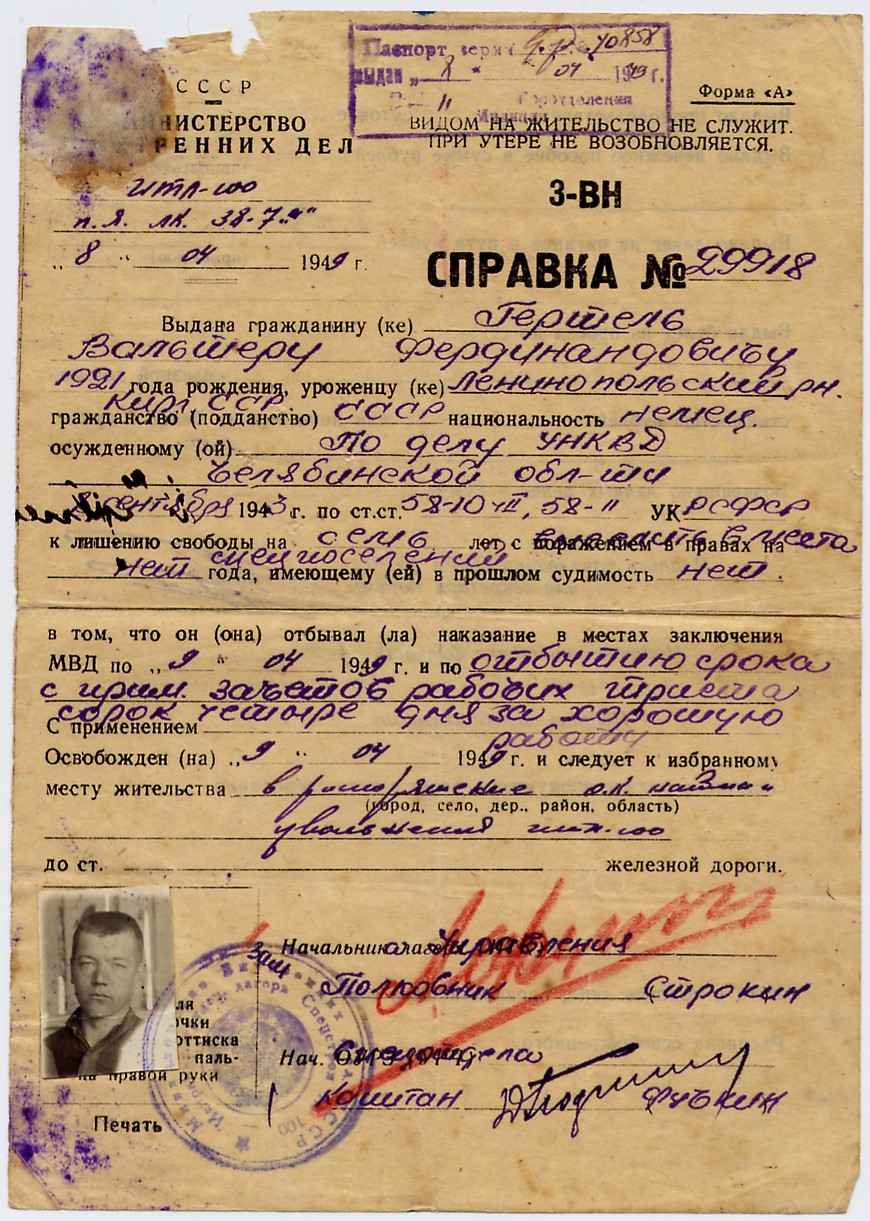 Паспорт, серия 40858
выдан „ 8 " 04 1949 г.
СССР
Форма «А»
МИНИСТЕРСТВО
ВНУТРЕННИХ ДЕЛ
ВИДОМ НА ЖИТЕЛЬСТВО НЕ СЛУЖИТ.
ПРИ УТЕРЕ НЕ ВОЗОБНОВЛЯЕТСЯ.
ИТЛ-100
п.я. ЛК. 38-7
3-ВН
„ 8 " 04 1949 г.
СПРАВКА № 29918
Выдана гражданину (ке) Гертель
Вальтеру Фердинандовичу
1921 года рождения, уроженцу (ке) Ленинопольский рн.
Кирг ССР
гражданство (подданство) СССР национальность немец.
осужденному (ой) По делу УНКВД
Челябинской обл-ти
8 сентября 1943 г. по ст.ст. 58-10 ч II, 58-11 УК РСФСР
к лишению свободы на семь лет, с поражением в правах на
места спецпоселения
нет года, имеющему (ей) в прошлом судимость нет.
в том, что он (она) отбывал (ла) наказание в местах заключения
МВД по „ 9 " 04 1949 г. и по отбытию срока
с прим. зачетов рабочих триста
сорок четыре дня за хорошую
С применением работу
Освобожден (на) „ 9 " 04 1949 г. и следует к избранному
месту жительства в распоряжение о.к.
(город, село, дер., район, область)
увольнения ИТЛ-100
до ст. железной дороги.
Зам Начальника Управления
Полковник Строкин
ля
очки
оттиска
паль-
ца правой руки
Нач. Спецотдела
Капитан Фучкин
Печать